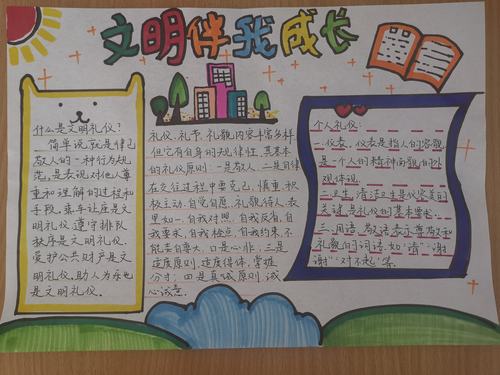 文明伴我成长
什么是文明礼仪?
简单说就是律己
敬人的一种行为规
范,是表现对他人尊
重和理解的过程和
手段。乘车让座是文
明礼仪,遵守排队
秩序是文明礼仪,
爱护公共财产是文
明礼仪,助人为乐也
是文明礼仪。
礼仪、礼节、礼貌内容丰富多样,
但它有自身的规律性,其基本
的礼仪原则:一是敬人,二是自律,
在交往过程中要克己,慎重,积
极主动,自觉自愿,礼貌待人,表
里如一,自我对照,自我反省,自
我要求,自我检点,自我约束,不
能妄自尊大,口是心非;三是
适度原则,适度得体,掌握
分寸;四是真诚原则,诚
心诚意。
个人礼仪:
一、仪表,仪表是指人的容貌,
是一个人的精神面貌的外
观体现。
二、卫生,清洁卫生是仪容美的
关键,是礼仪的基本要求。
三、用语,敬语表示尊敬和
礼貌的词语,如:"请""谢
谢""对不起"等。